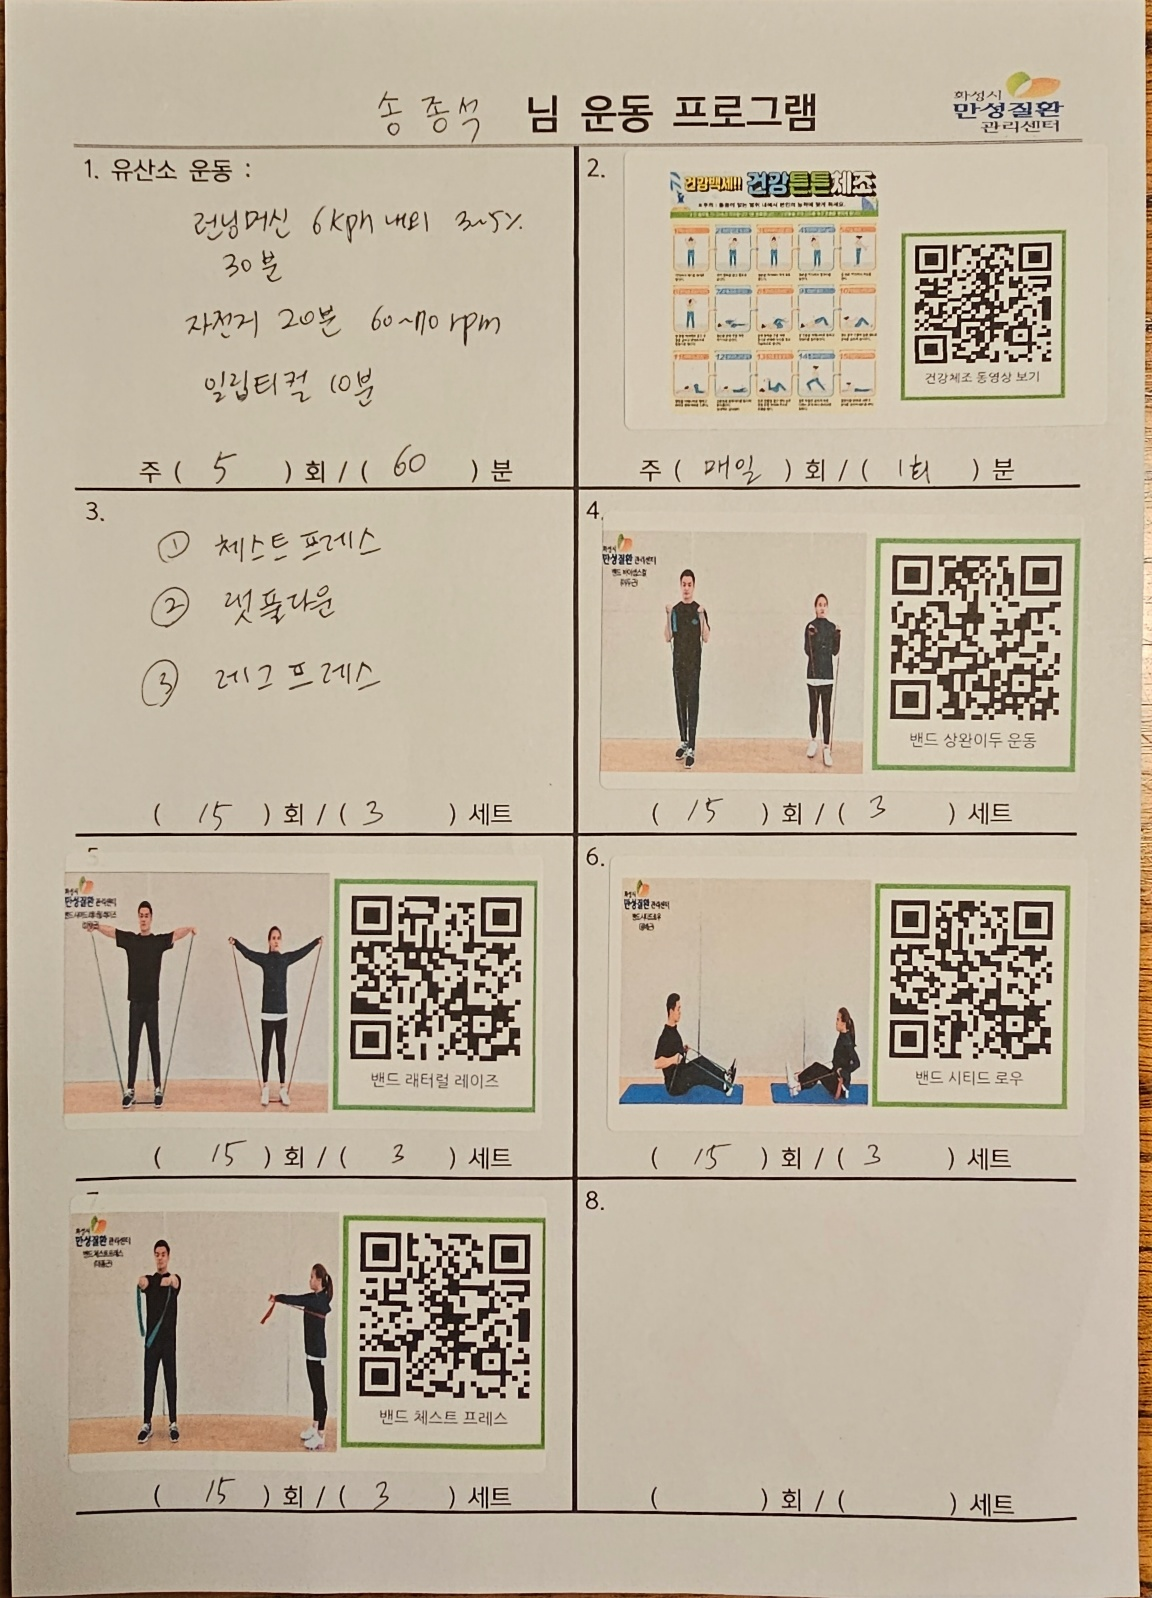 송종석 님 운동 프로그램
화성시
만성질환
관리센터
1. 유산소 운동 :
런닝머신 6kph 내외 3~5%
30분
자전거 20분 60~70rpm
일립티컬 10분
주 ( 5 ) 회 / ( 60 ) 분
2.
건강백세!! 건강튼튼체조
건강체조 동영상 보기
주 ( 매일 ) 회 / ( 1회 ) 분
3.
① 체스트프레스
② 랫풀다운
③ 레그프레스
( 15 ) 회 / ( 3 ) 세트
4.
화성시
만성질환 관리센터
밴드 바이셉스컬
(이두근)
밴드 상완이두 운동
( 15 ) 회 / ( 3 ) 세트
5.
화성시
만성질환 관리센터
밴드 래터럴 레이즈
( 15 ) 회 / ( 3 ) 세트
6.
화성시
만성질환 관리센터
밴드 시티드로우
밴드 시티드 로우
( 15 ) 회 / ( 3 ) 세트
7.
화성시
만성질환 관리센터
밴드 체스트프레스
(대흉근)
밴드 체스트 프레스
( 15 ) 회 / ( 3 ) 세트
8.
( ) 회 / ( ) 세트